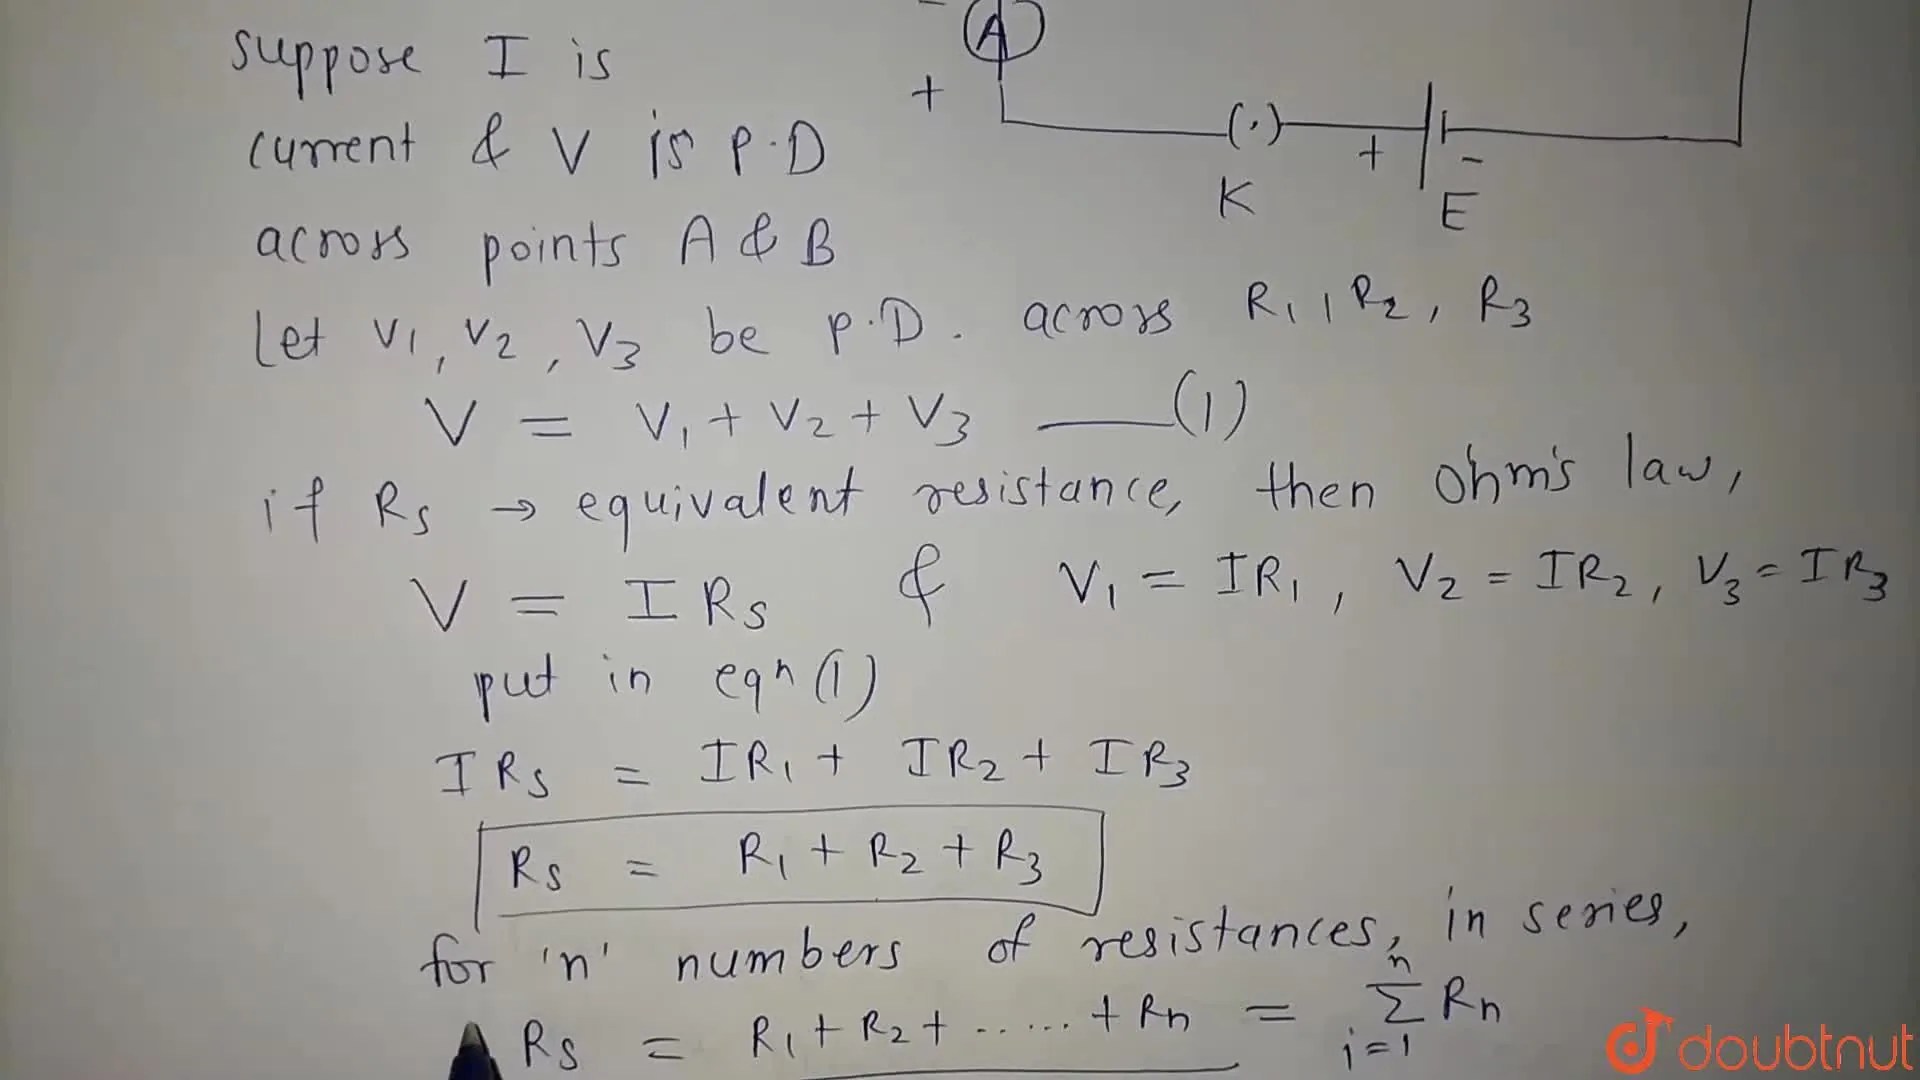 suppose I is
current & V is P.D
across points A & B
Let V1, V2, V3 be P.D. across R1, R2, R3
V = V1 + V2 + V3 ——(1)
if Rs → equivalent resistance, then ohm's law,
V = IRs & V1 = IR1, V2 = IR2, V3 = IR3
put in eqn (1)
IRs = IR1 + IR2 + IR3
Rs = R1 + R2 + R3
for 'n' numbers of resistances, in series,
Rs = R1 + R2 + ...... + Rn = n∑i=1 Rn
A
+
(·)
K
+
-
E
doubtnut